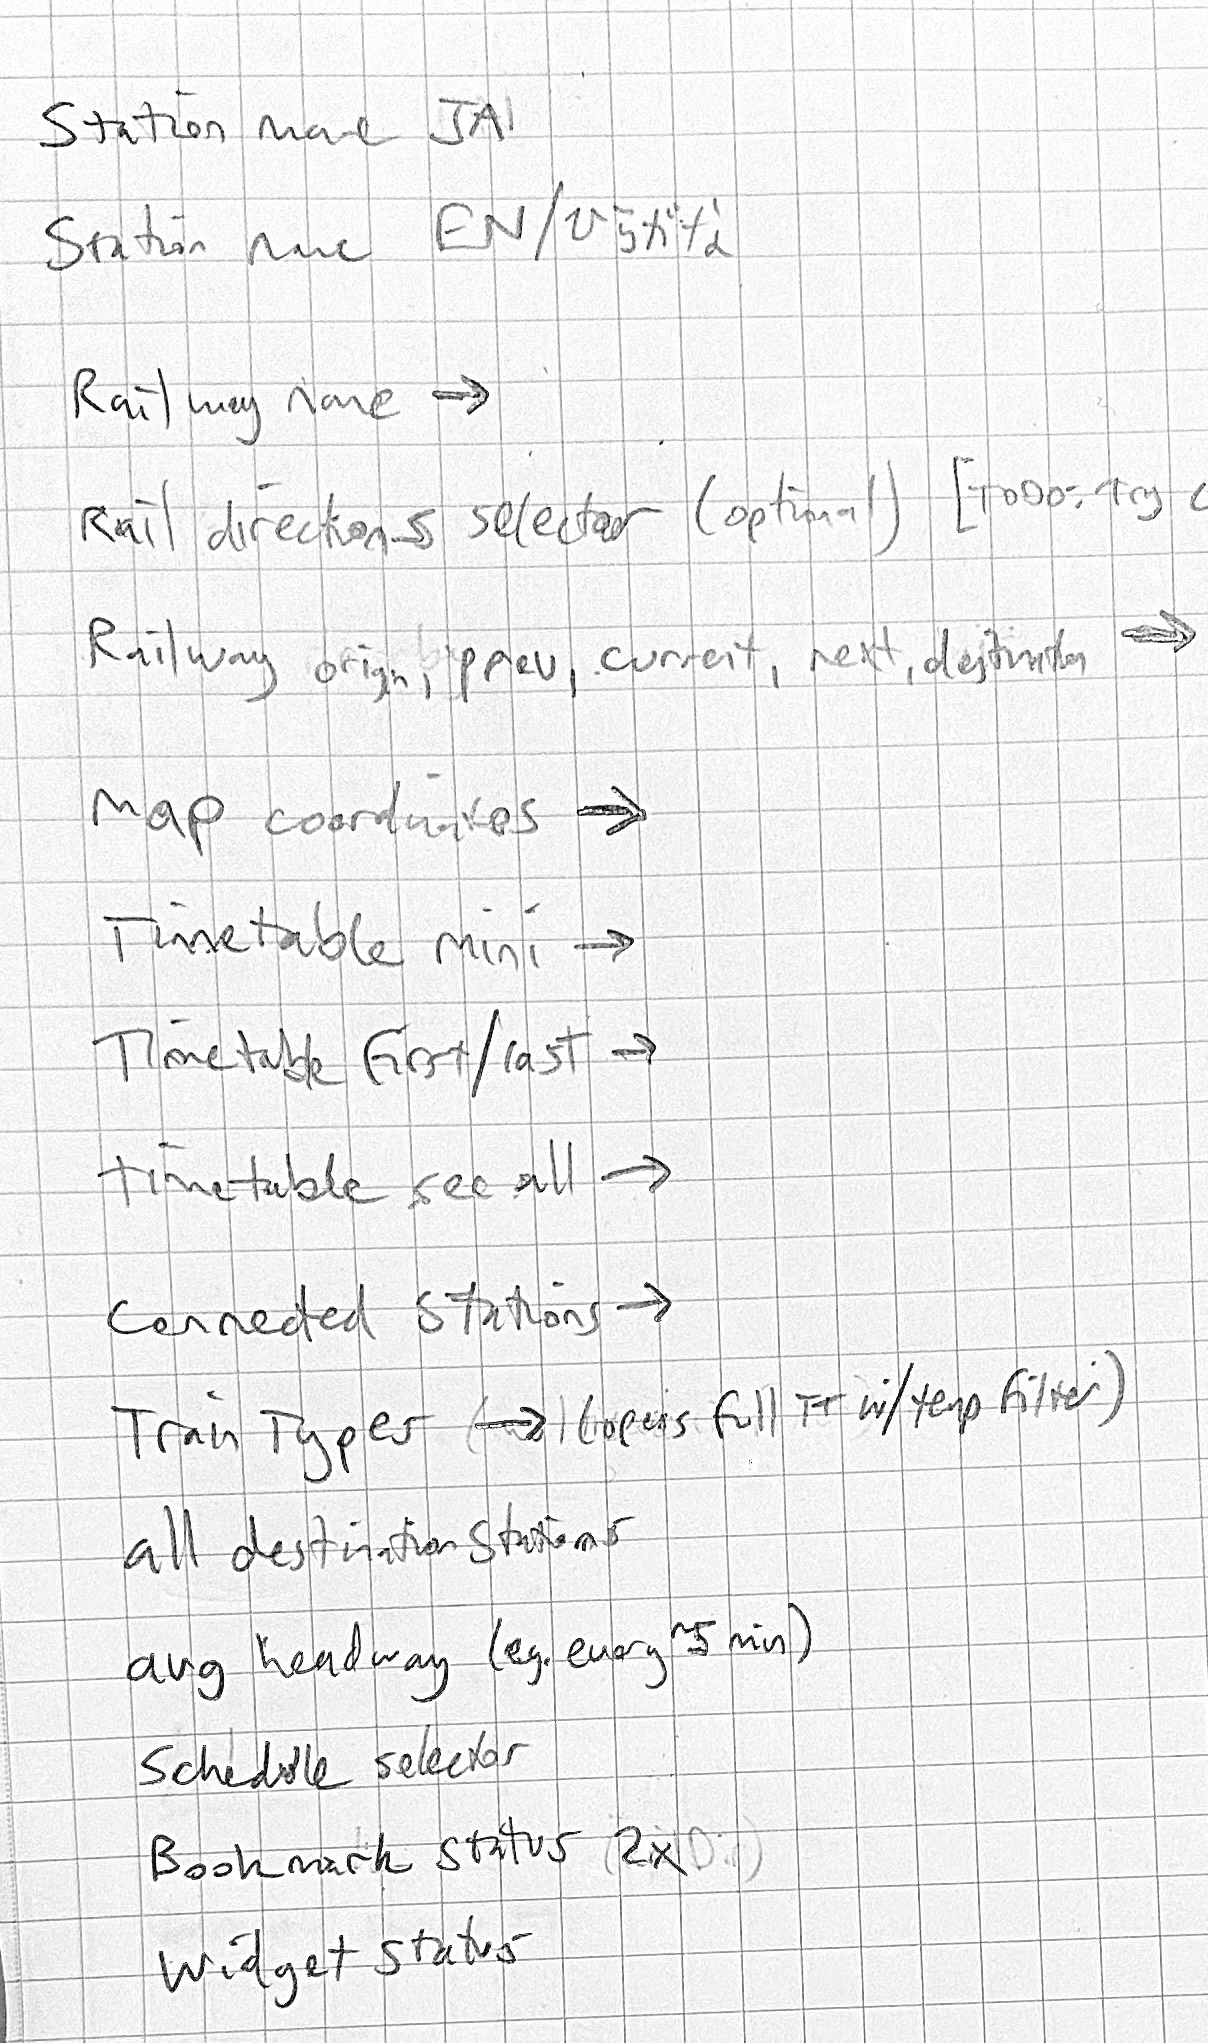 Station name JA
Station name EN/ひらがな
Railway name →
Rail directions selector (optional) [TODO: Try
Railway origin, prev, current, next, destination →
Map coordinates →
Timetable mini →
Timetable first/last →
timetable see all →
Connected stations →
Train Types (→) (opens full TT w/temp filter)
all destination stations
avg headway (eg. every ~5 min)
Schedule selector
Bookmark status (2x
Widget status